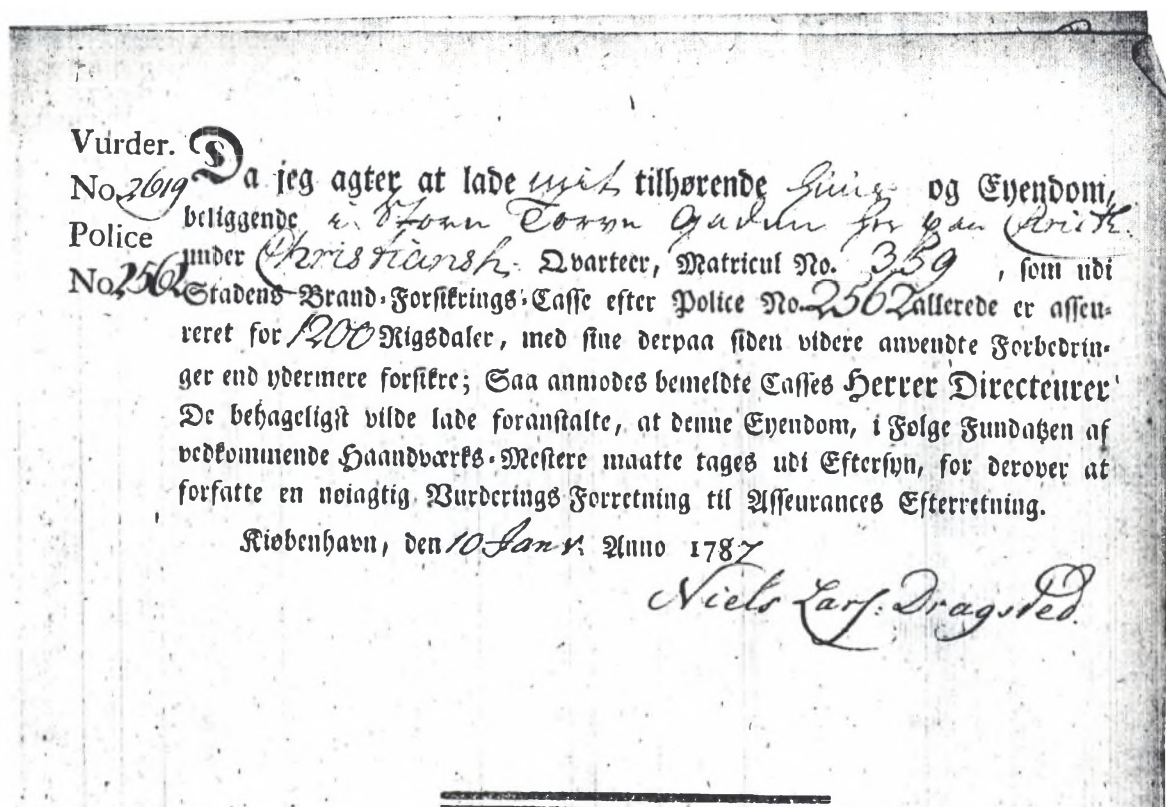 Vurder.
No. 2619
Police
No. 2562
Da jeg agter at lade mit tilhørende Huus og Eyendom,
beliggende i Store Torve Gaden her paa Christh.
under Christiansh. Qvarteer, Matricul No. 359, som udi
Stadens Brand-Forsikrings-Casse efter Police No. 2562 allerede er assen-
reret for 1200 Rigsdaler, med sine derpaa siden videre anvendte Forbedrin-
ger end ydermere forsikre; Saa anmodes bemeldte Casses Herrer Directeurer
De behageligst vilde lade foranstalte, at denne Eyendom, i Følge Fundatzen af
vedkommende Haandværks-Mestere maatte tages udi Eftersyn, for derover at
forfatte en nøiagtig Vurderings Forretning til Asseurances Efterretning.
Kiøbenhavn, den 10 Janr. Anno 1787
Niels Lars: Dragsted.